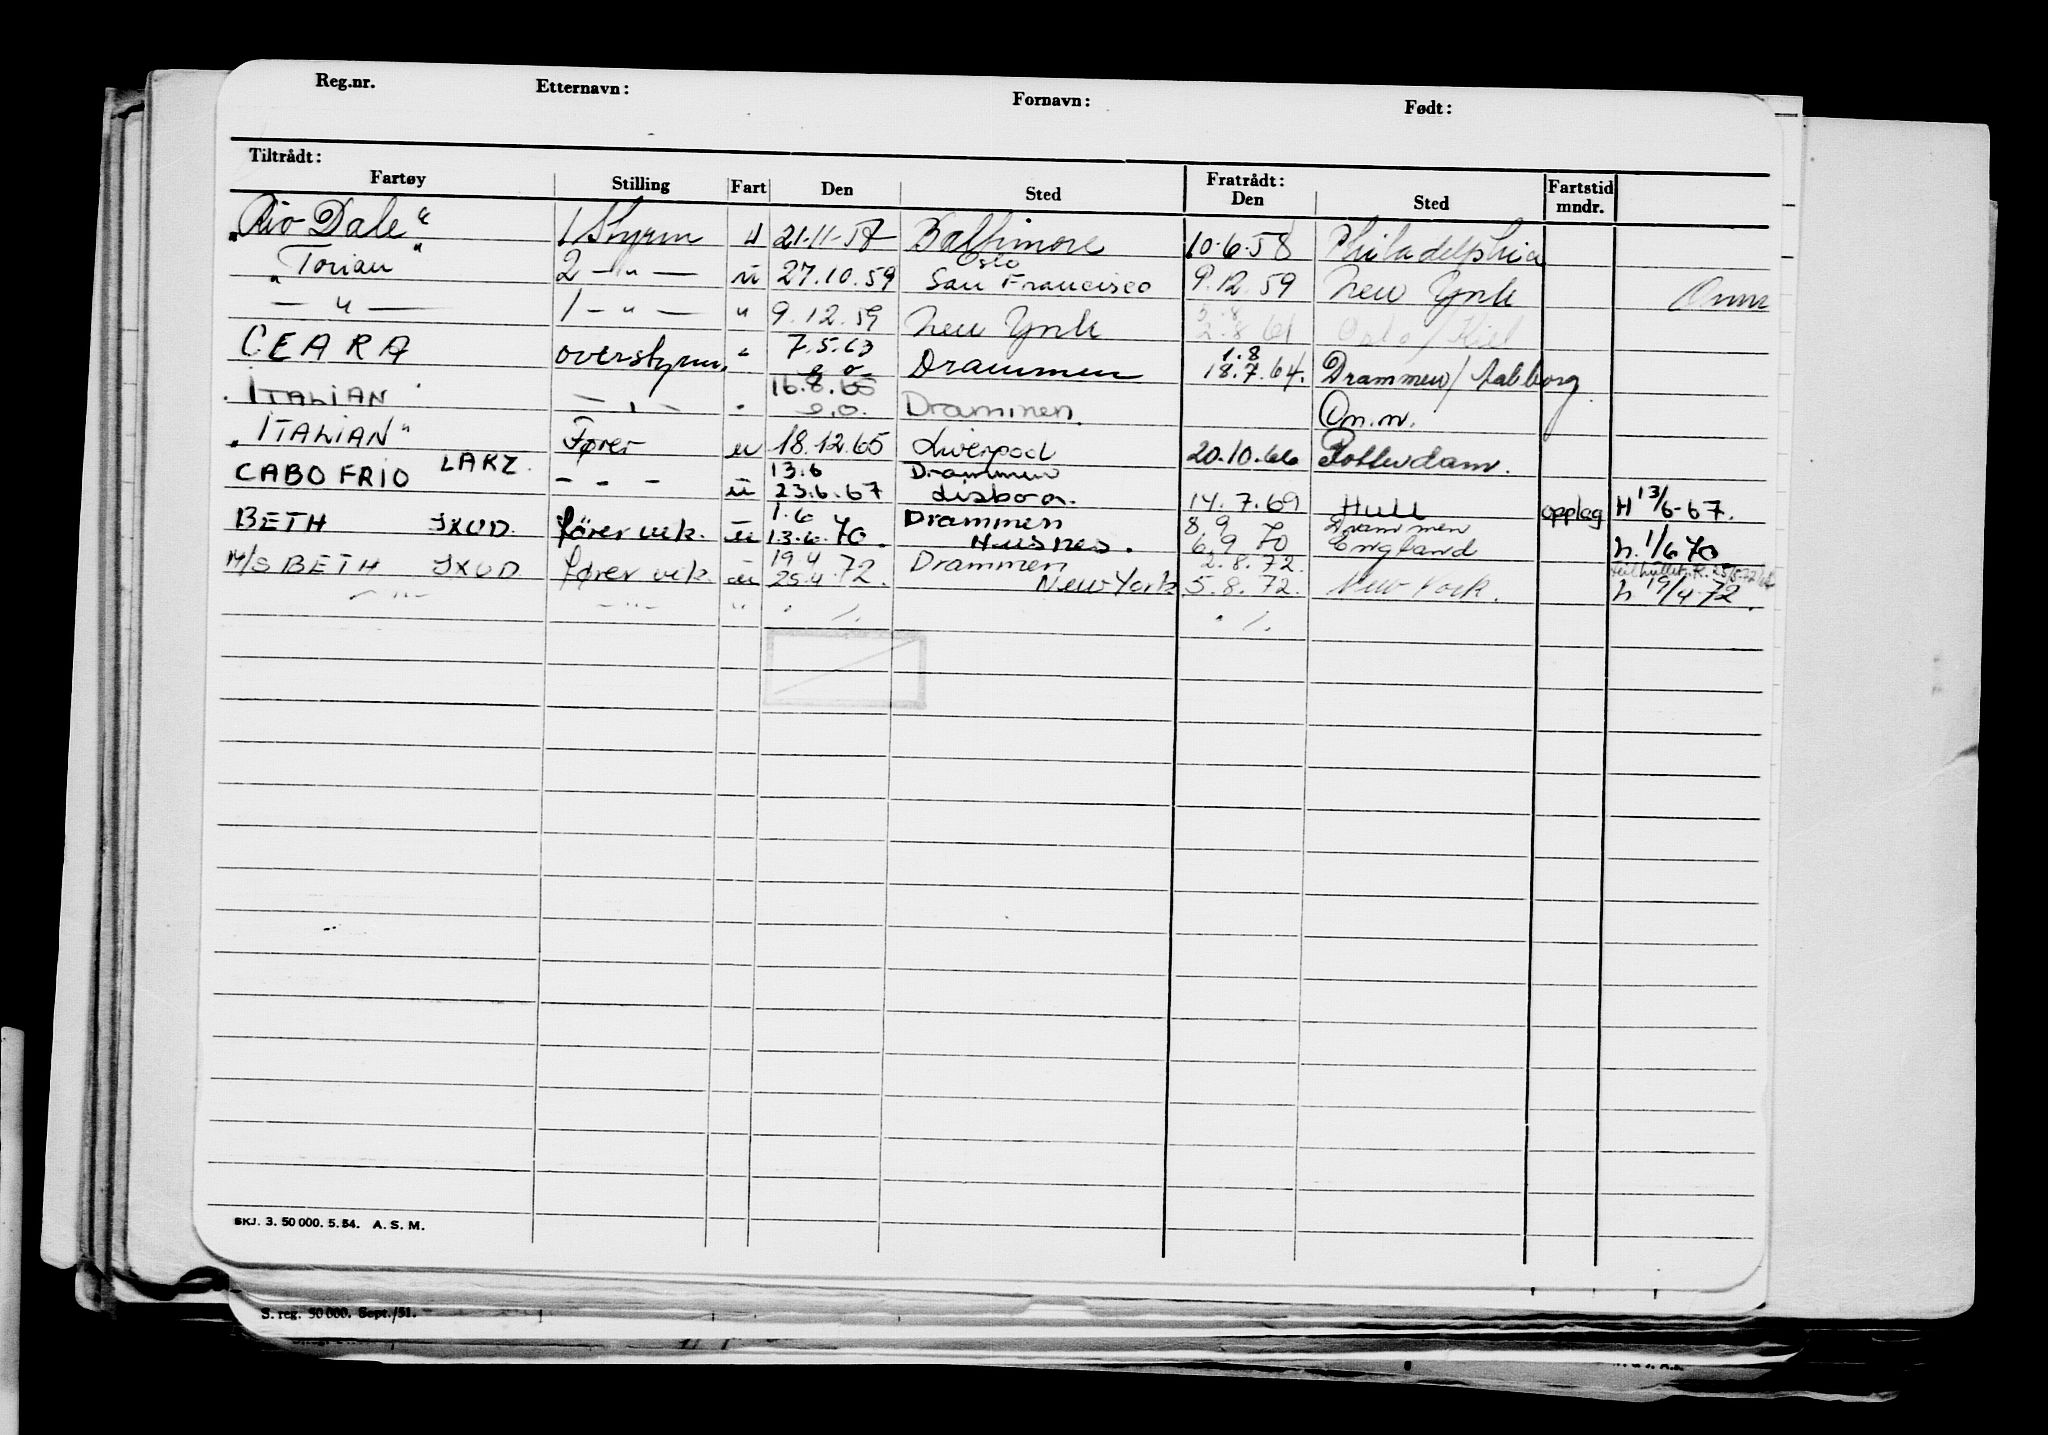 Reg.nr. Etternavn: Fornavn: Født:
Tiltrådt: Fratrådt:
Fartøy Stilling Fart Den Sted Den Sted Fartstid mndr.
"Rio Dale" 1 Styrm u 21-11-57 Baltimore 10-6-58 Philadelphia
"Torian" 2 - " - u 27.10.59 Oslo San Francisco 9.12.59 New York
- " - 1 - " - " 9.12.59 New York 61 Oslo/Kiel
CEARA overstyrm. " 7.5.63 Drammen 1.8 18.7.64. Drammen/Aalborg
ITALIAN - " - " 16.8.65 Drammen. On.m.
"ITALIAN" Fører u 18.12.65 Liverpool 20.10.66 Rotterdam.
CABO FRIO - - - u 13.6 23.6.67 Drammen 14.7.69 Hull opplag H 13/6-67.
BETH fører vik. u 1.6 13.6.70 Drammen Husnes. 8.9 6.9 70 Drammen England h. 1/6 70
M/S BETH fører vik u 19.4 25.4.72. Drammen New York 2.8.72. 5.8.72. New York. h 19/4 72.
- " - - " - " . /. . /.
SKJ. 3. 50 000. 5. 54. A. S. M.
S. reg. 50 000. Sept./51.